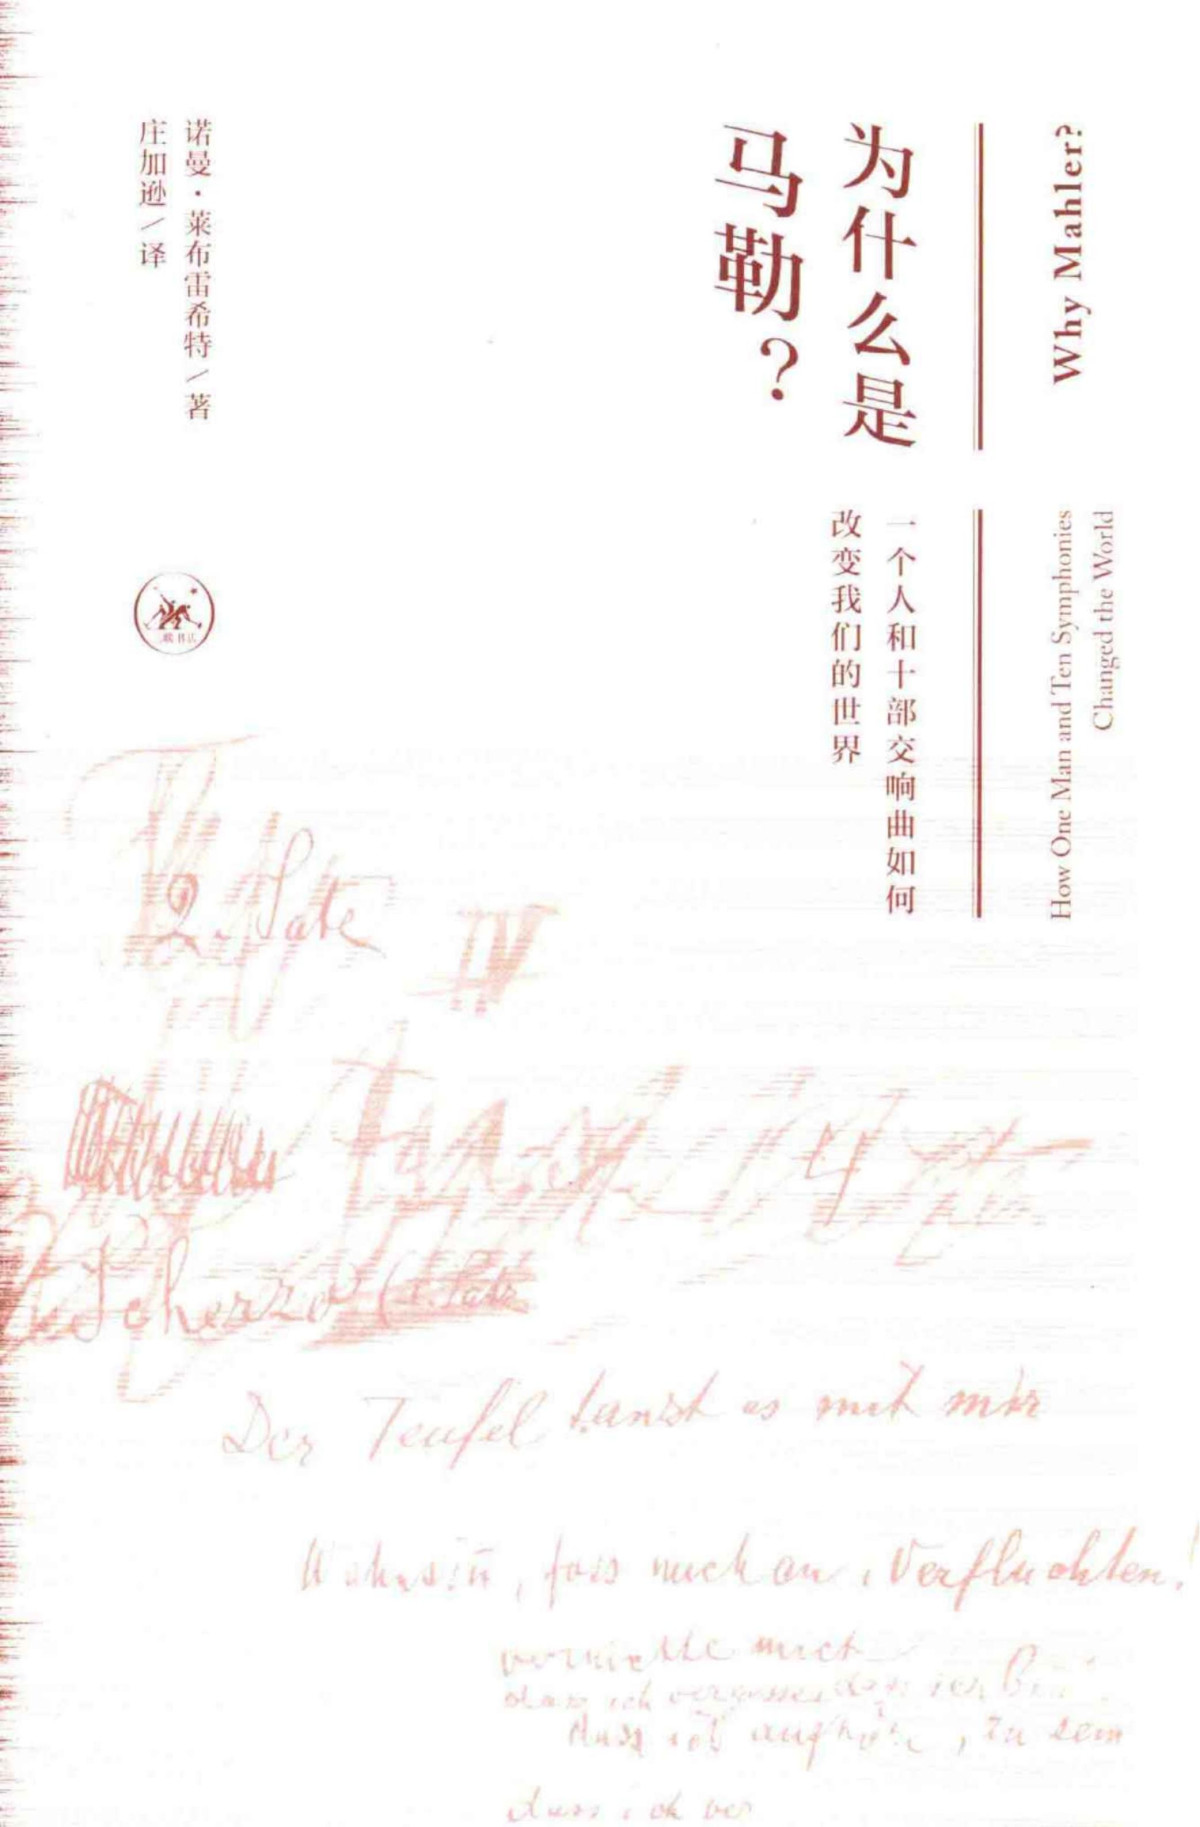 Why Mahler?
How One Man and Ten Symphonies
Changed the World
为什么是
马勒？
一个人和十部交响曲如何
改变我们的世界
诺曼·莱布雷希特/著
庄加逊/译
三联书店
2. Satz
IV
Scherzo (1. Satz
Der Teufel tanzt es mit mir
Wahnsin̄, fass mich an, Verfluchten!
vernichte mich
dass ich vergesse, dass ich bin
dass ich aufhöre, zu sein
dass ich ver